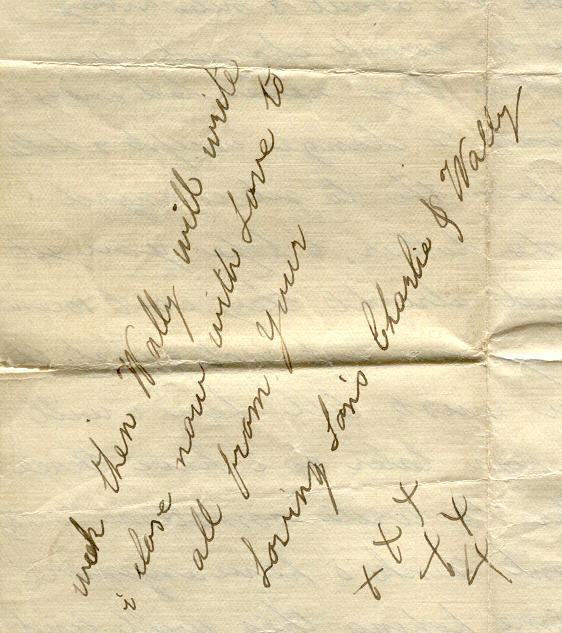 week then Wally will write
i close now with Love to
all from your
Loving Son's Charlie & Wally
x x x
x x
x